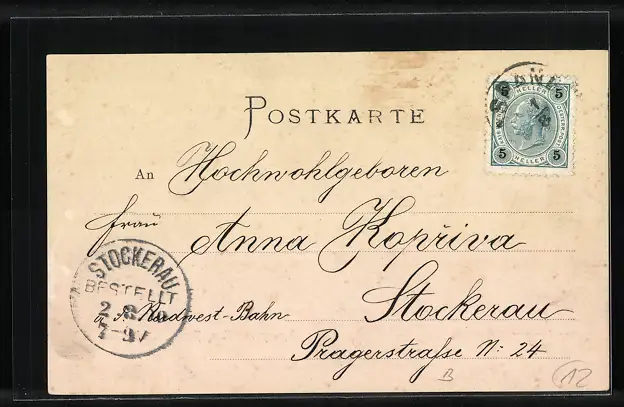 POSTKARTE
An Hochwohlgeboren
Frau
Anna Kopřiva
Stockerau
a. d. Nordwest-Bahn
Pragerstraſse N: 24
STOCKERAU
BESTELLT
2 8
7-9V
5 5
HELLER
5 5
HELLER
B
12